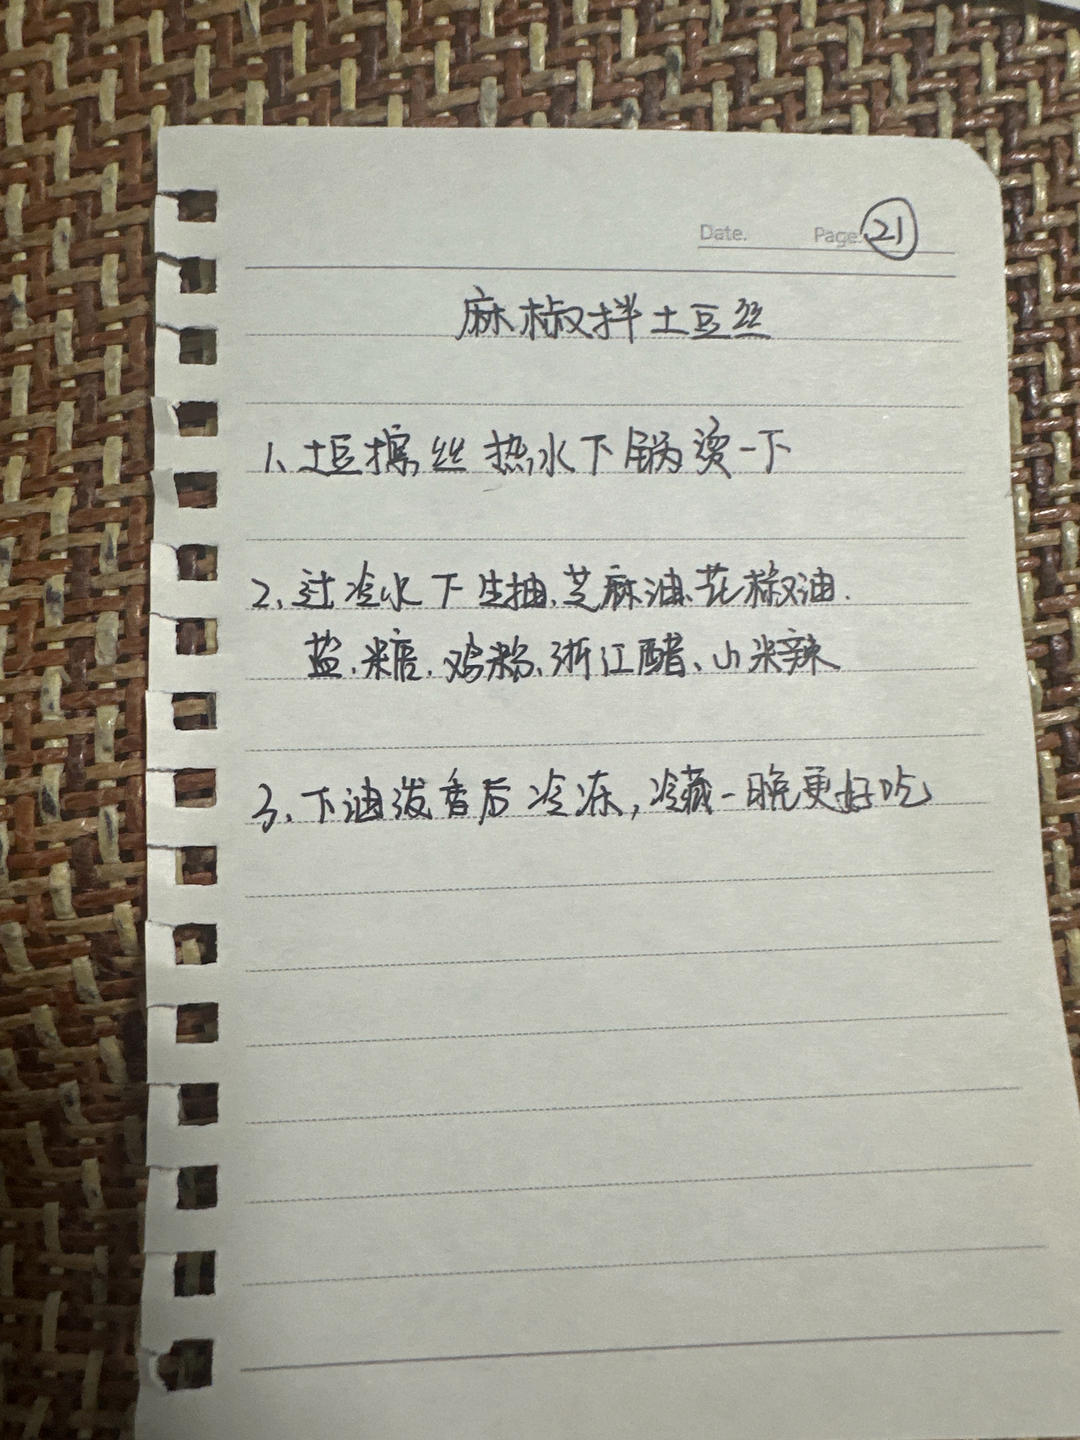 Date. Page. 21
麻椒拌土豆丝
1、土豆擦丝 热水下锅烫一下
2、过冷水下生抽、芝麻油、花椒油、
盐、糖、鸡粉、浙江醋、小米辣
3、下油泼香后冷冻,冷藏一晚更好吃